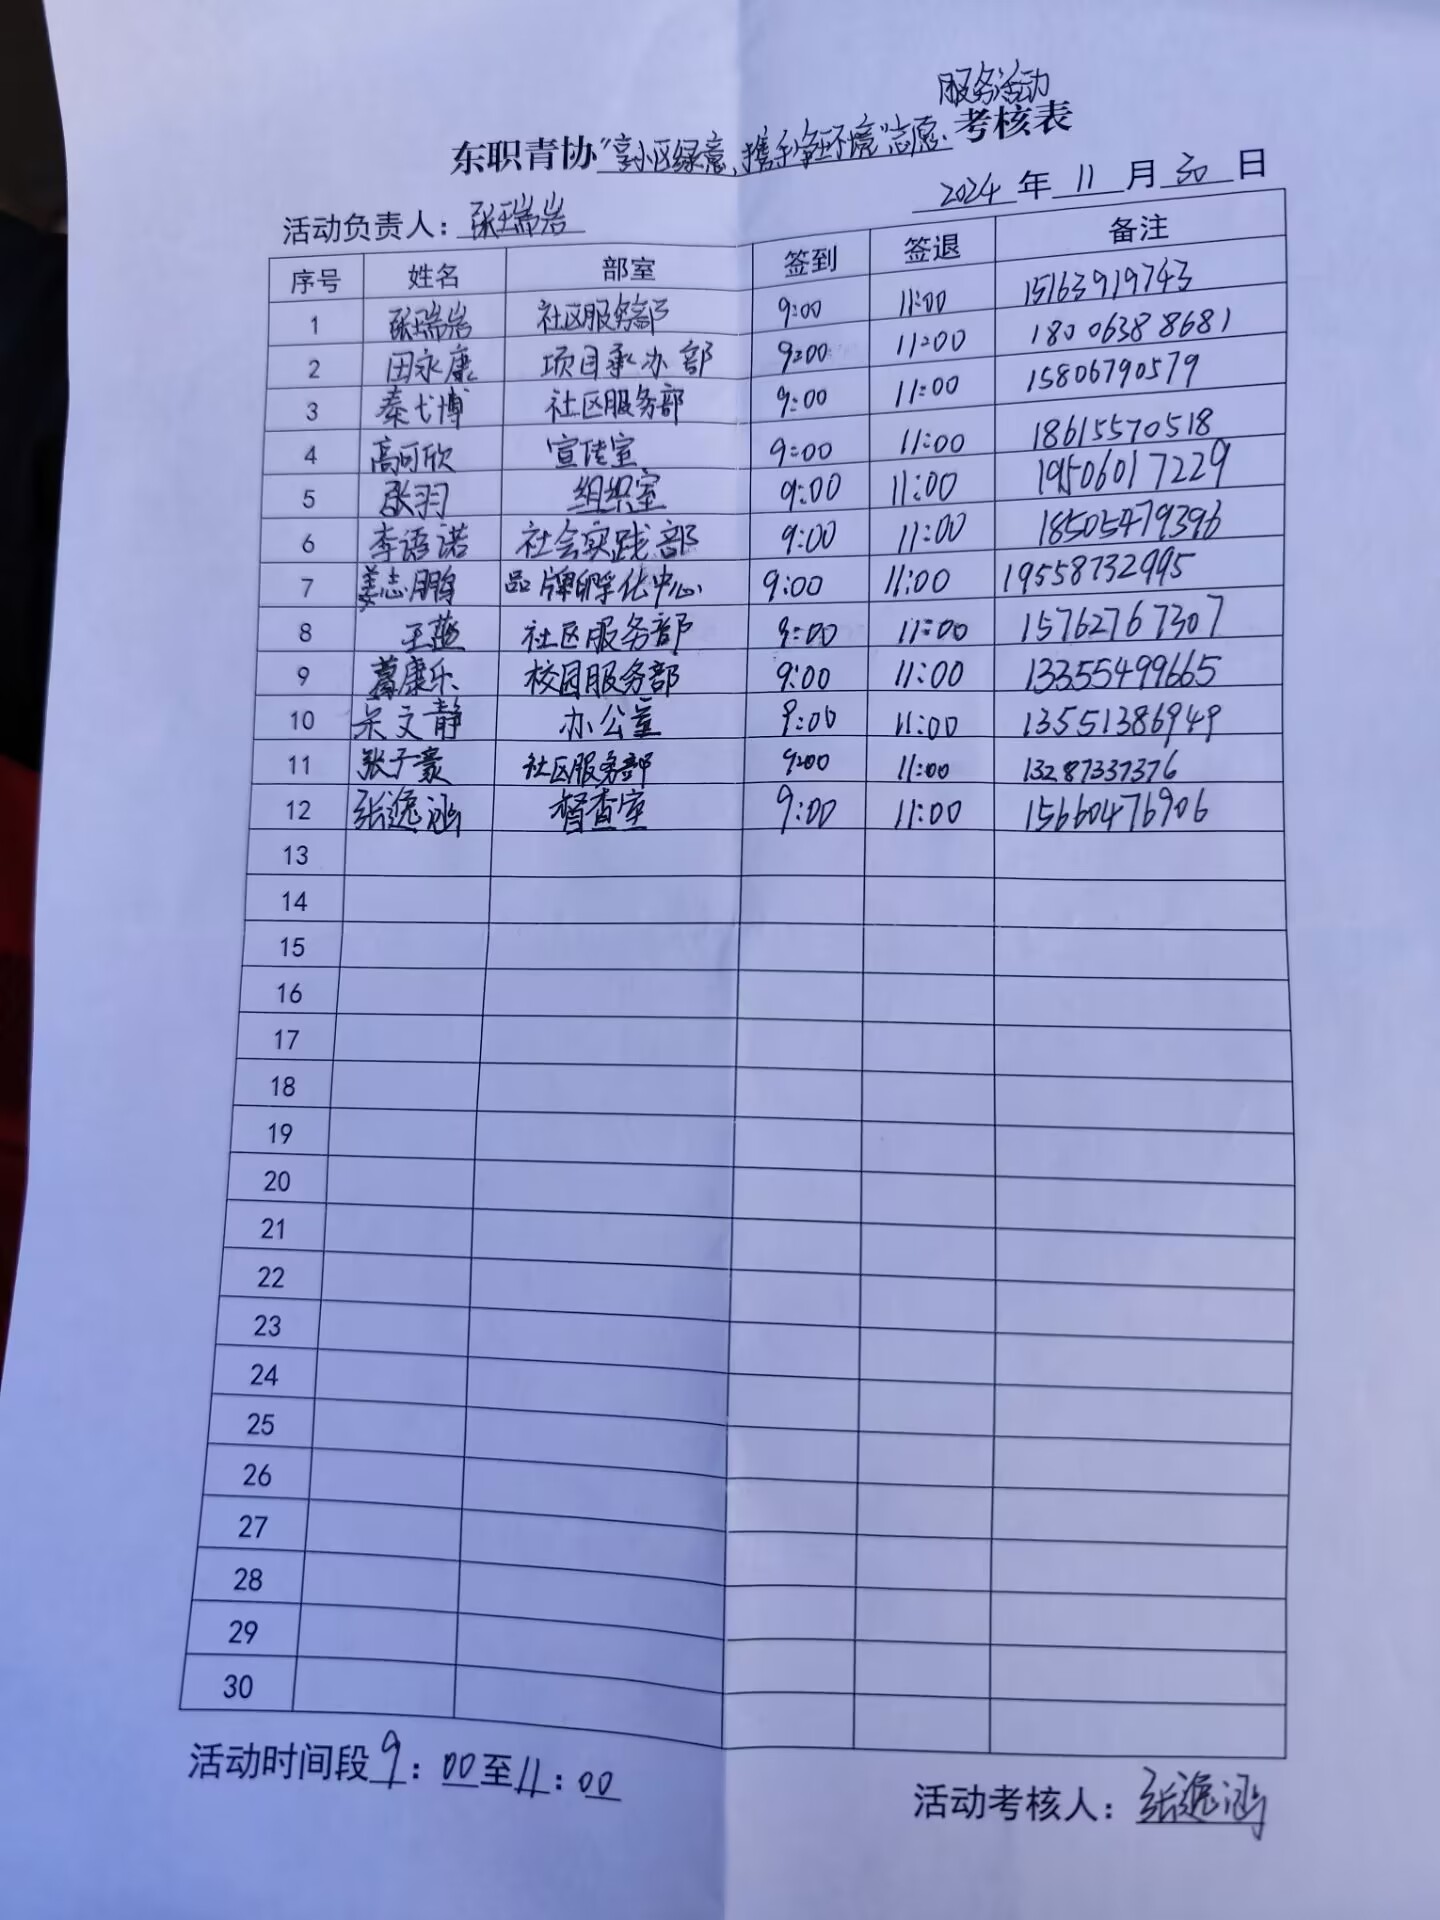 服务活动
东职青协"享小区绿意,携手护环境"志愿.考核表
2024年11月30日
活动负责人:张瑞岩
序号 姓名 部室 签到 签退 备注
1 张瑞岩 社区服务部 9:00 11:00 15163919743
2 田永康 项目承办部 9:00 11:00 18006388681
3 秦弋博 社区服务部 9:00 11:00 15806790579
4 高可欣 宣传室 9:00 11:00 18615570518
5 张羽 组织室 9:00 11:00 19506017229
6 李语诺 社会实践部 9:00 11:00 18505479396
7 姜志鹏 品牌孵化中心 9:00 11:00 19558732995
8 王蓝 社区服务部 9:00 11:00 15762767307
9 葛康乐 校园服务部 9:00 11:00 13355499665
10 文静 办公室 9:00 11:00 13551386949
11 张子豪 社区服务部 9:00 11:00 13287337376
12 张逸涵 督查室 9:00 11:00 15660476906
13
14
15
16
17
18
19
20
21
22
23
24
25
26
27
28
29
30
活动时间段9:00至11:00
活动考核人:张逸涵